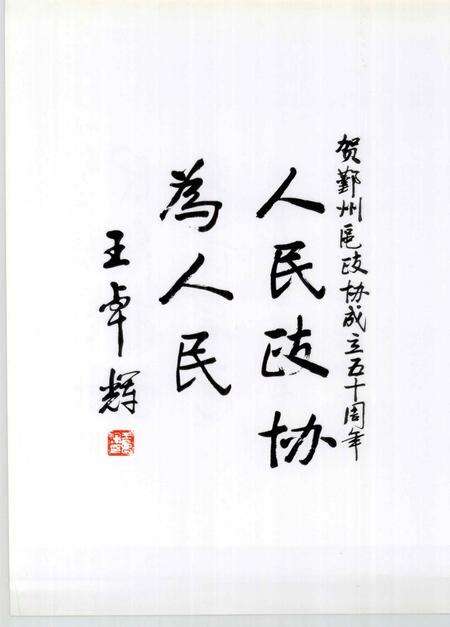 贺鄞州区政协成立五十周年
人民政协
為人民
王卓辉